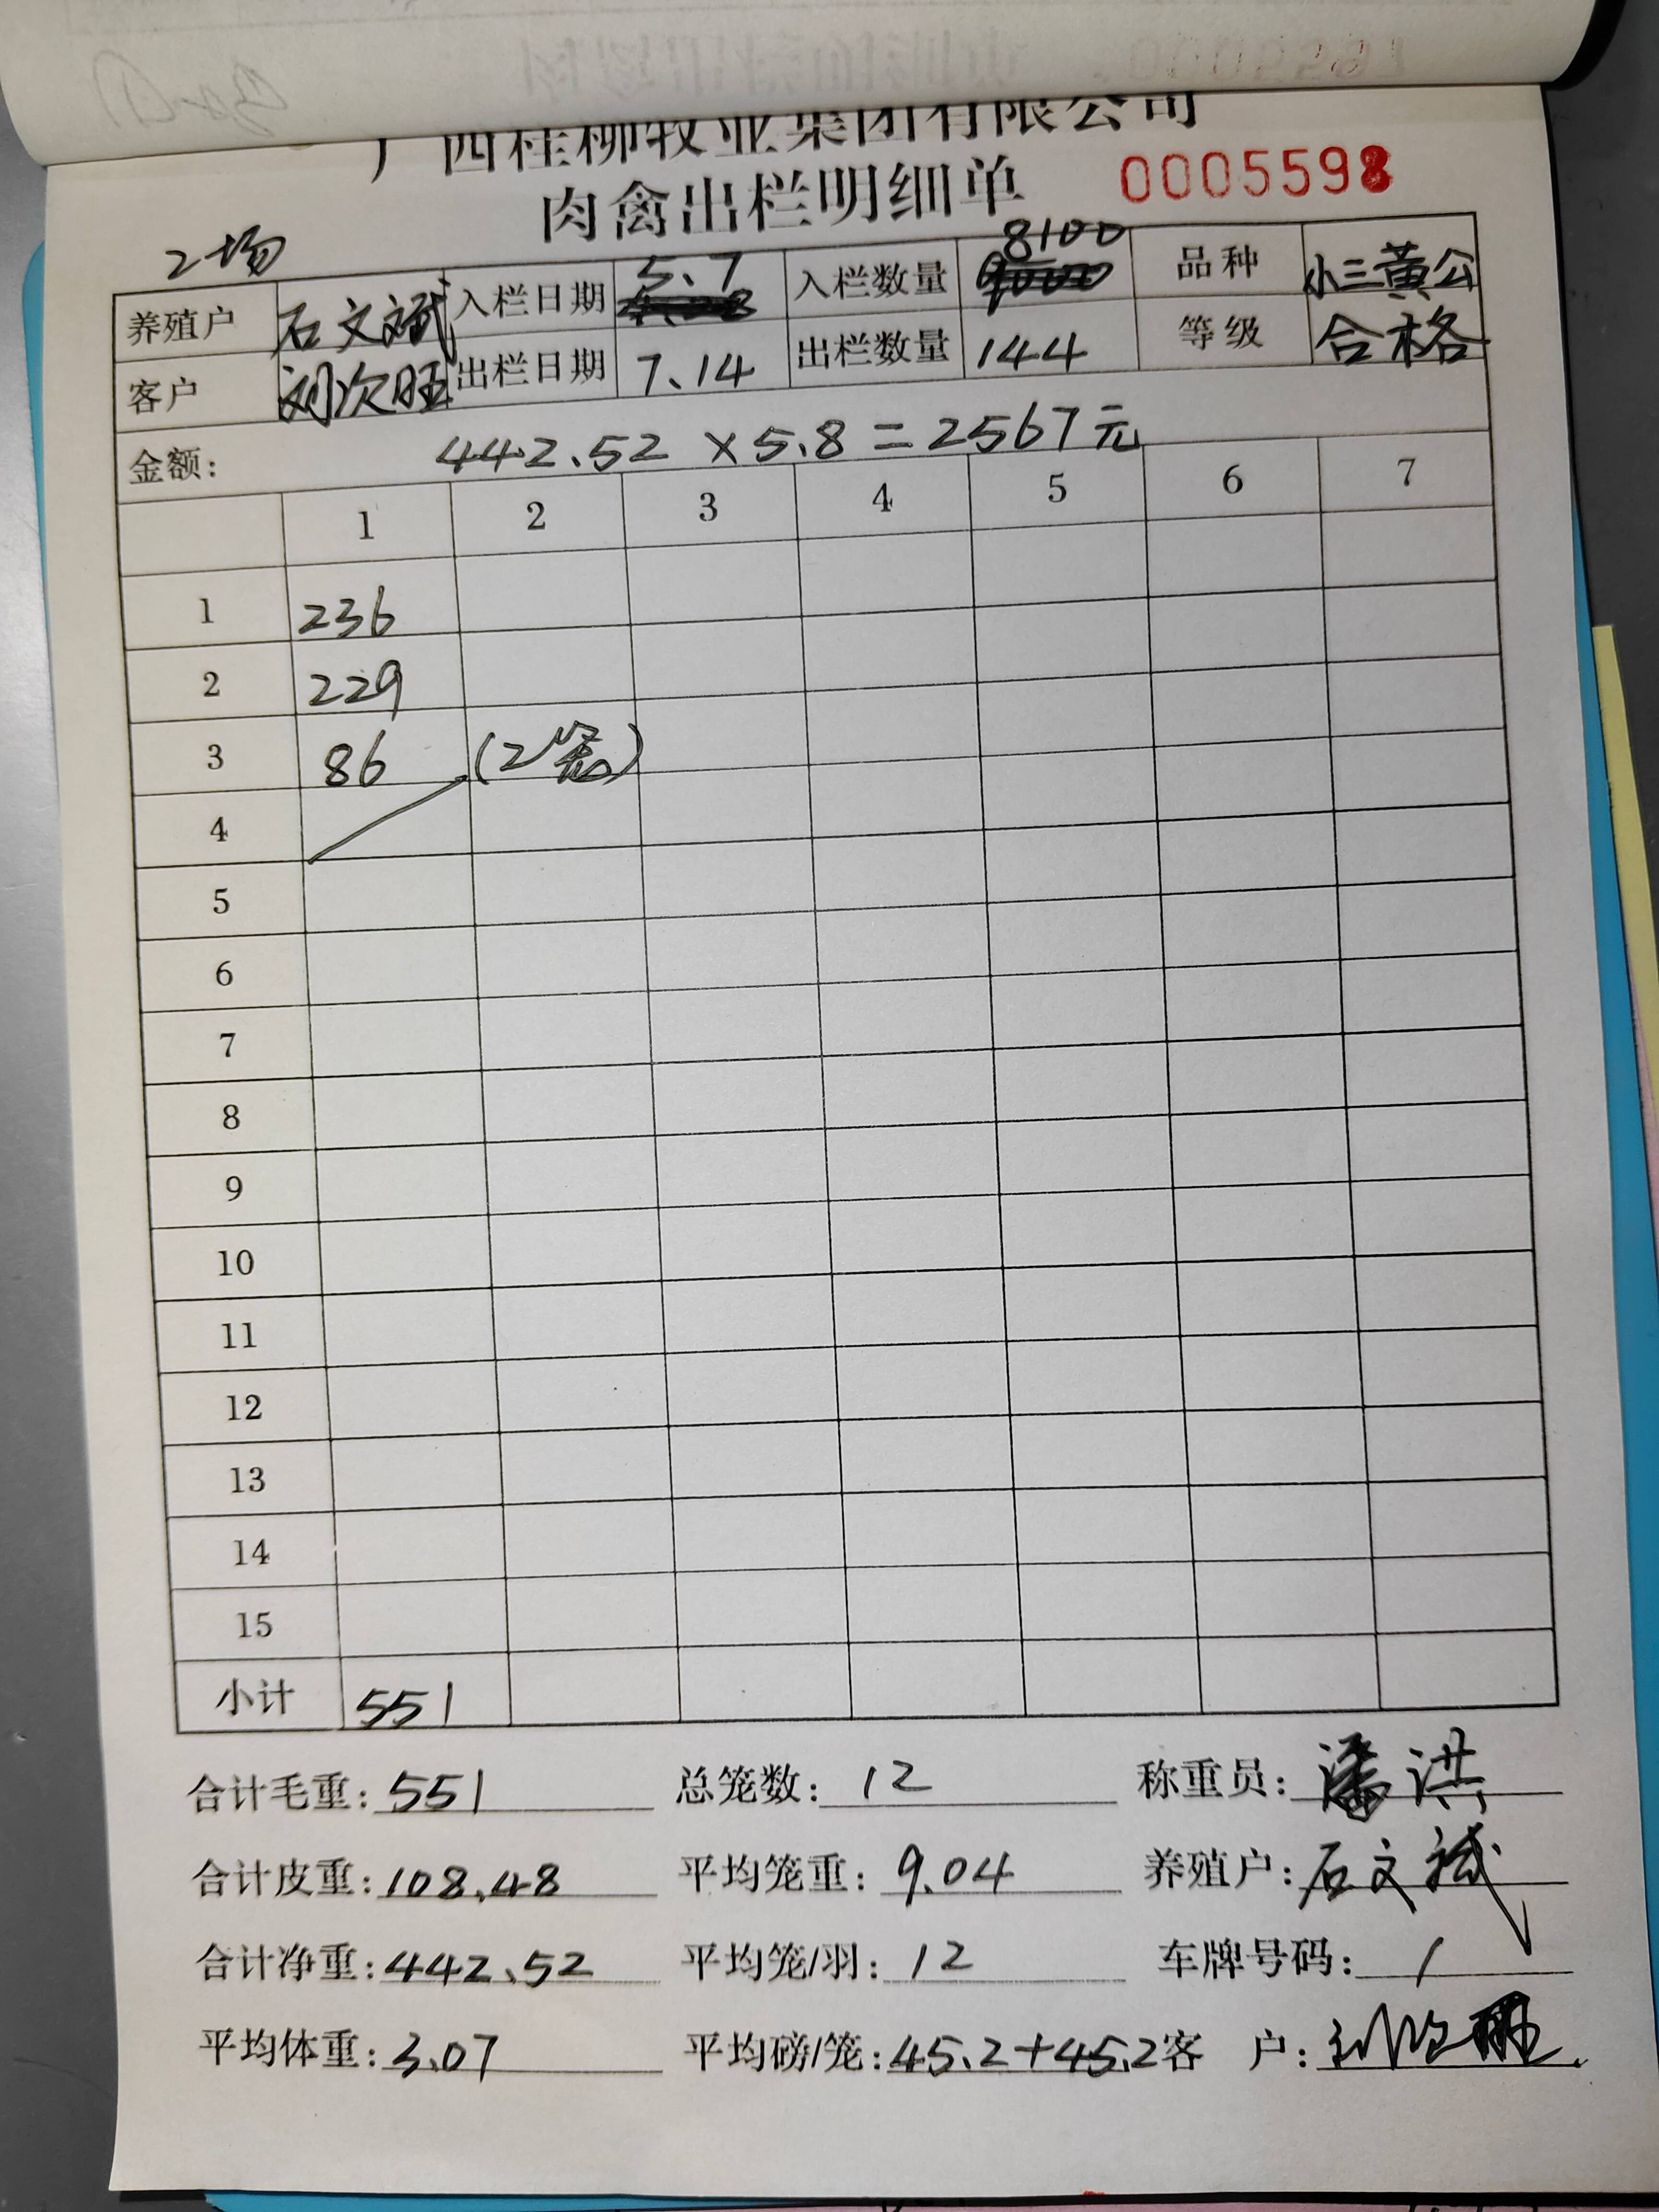 广西桂柳牧业集团有限公司
肉禽出栏明细单 0005598
2场
养殖户 石文斌 入栏日期 5.7 入栏数量 8100 品种 小三黄公
客户 刘次旺 出栏日期 7.14 出栏数量 144 等级 合格
金额: 442.52 ×5.8 = 2567元
1 2 3 4 5 6 7
1 236
2 229
3 86 (2笼)
4
5
6
7
8
9
10
11
12
13
14
15
小计 551
合计毛重: 551 总笼数: 12 称重员: 潘洪
合计皮重: 108.48 平均笼重: 9.04 养殖户: 石文斌
合计净重: 442.52 平均笼/羽: 12 车牌号码: /
平均体重: 3.07 平均磅/笼: 45.2+45.2 客 户: 刘次旺